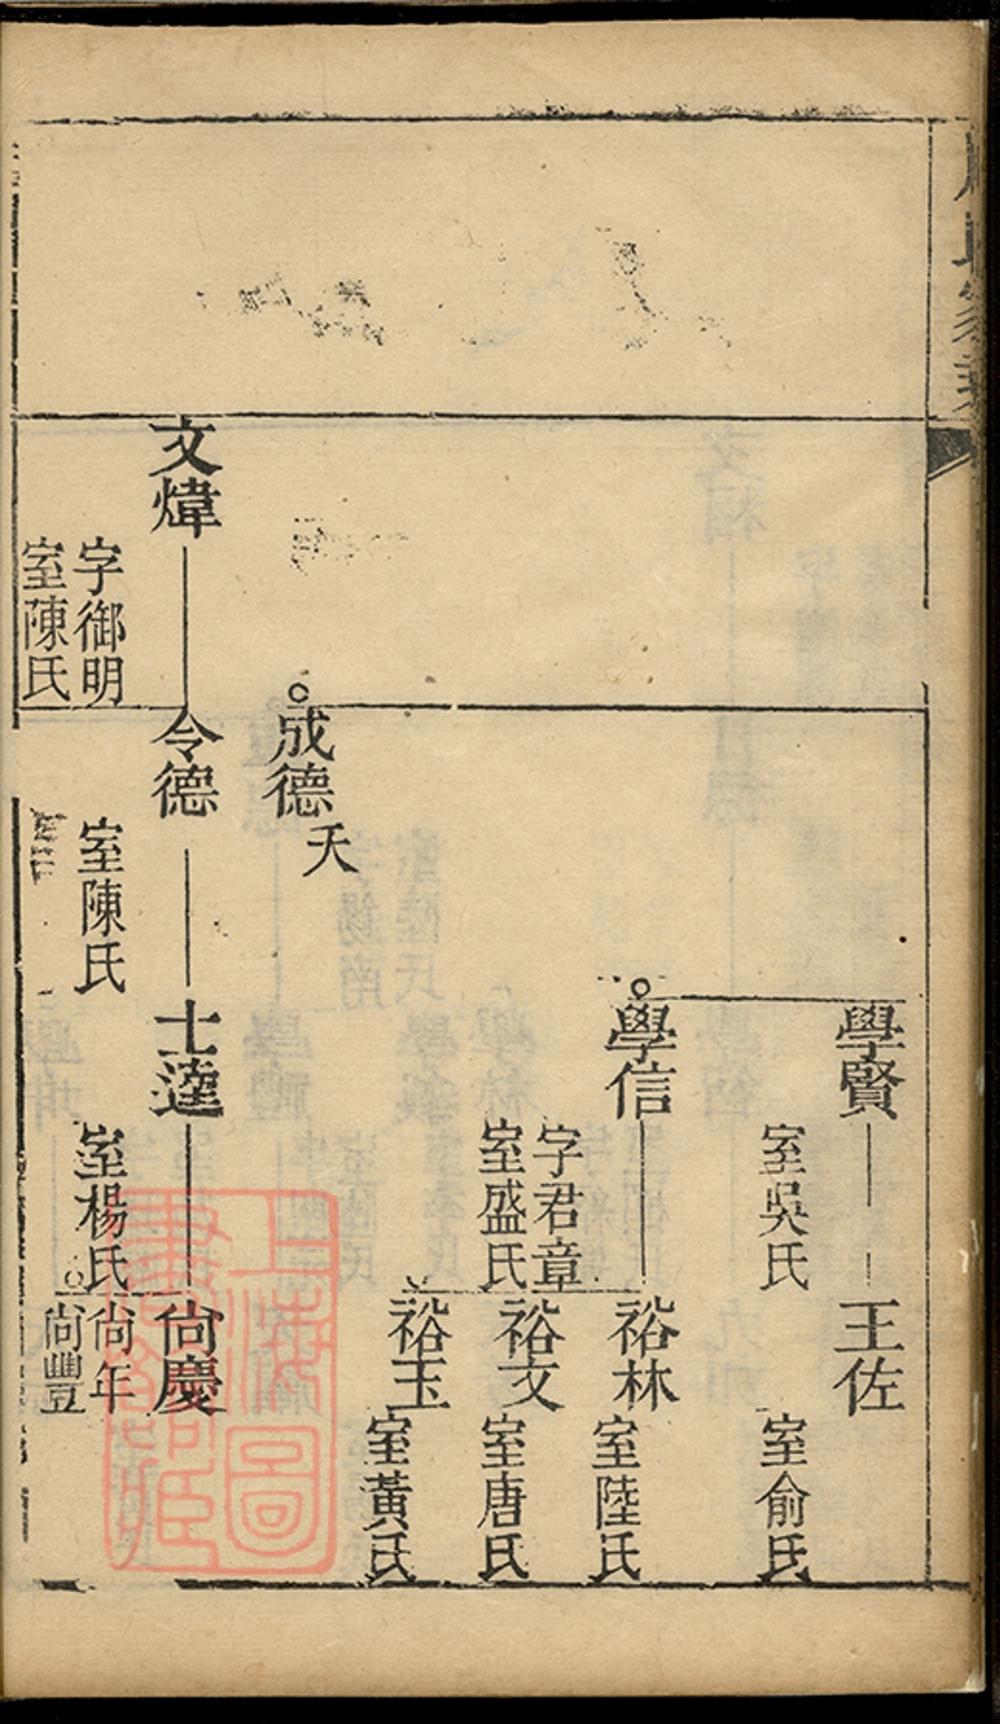 學賢
室吳氏
王佐
室俞氏
學信
字君章
室盛氏
裕林
室陸氏
裕文
室唐氏
裕玉
室黃氏
成德
夭
文煒
字御明
室陳氏
令德
室陳氏
士逵
室楊氏
尙慶
尙年
尙豐
上海圖書館藏